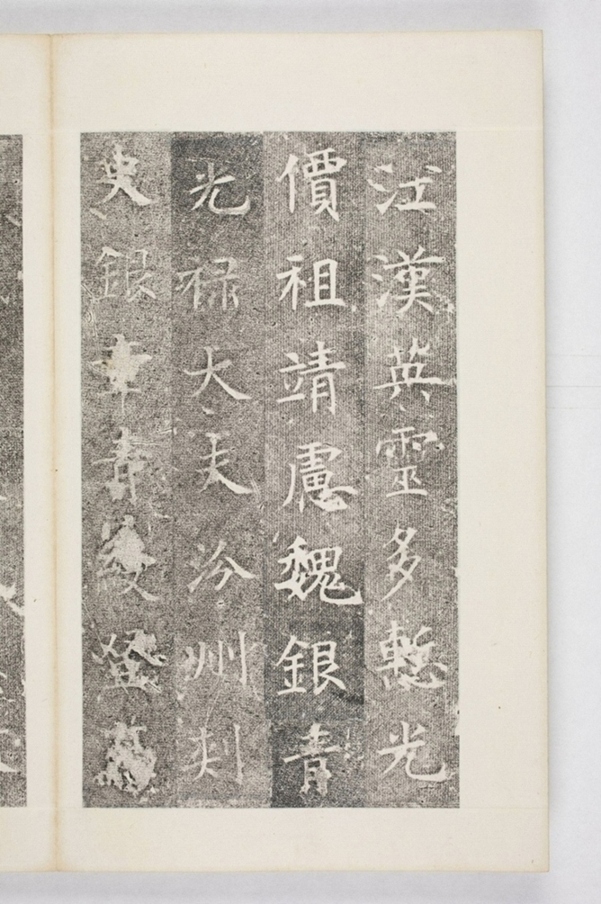 江漢英靈多慙光
價祖靖慮魏銀青
光禄大夫汾州刺
史銀章青綬